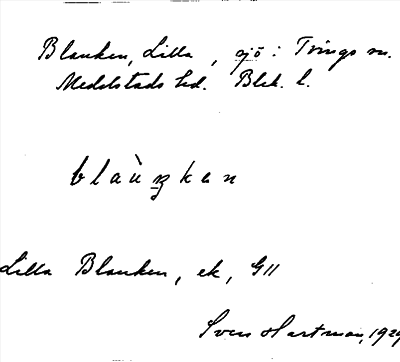 Blanken, Lilla, sjö i Tvings sn.
Medelstads hd. Blek. l.
Lilla Blanken, ek, G11
Sven Hartman, 1929